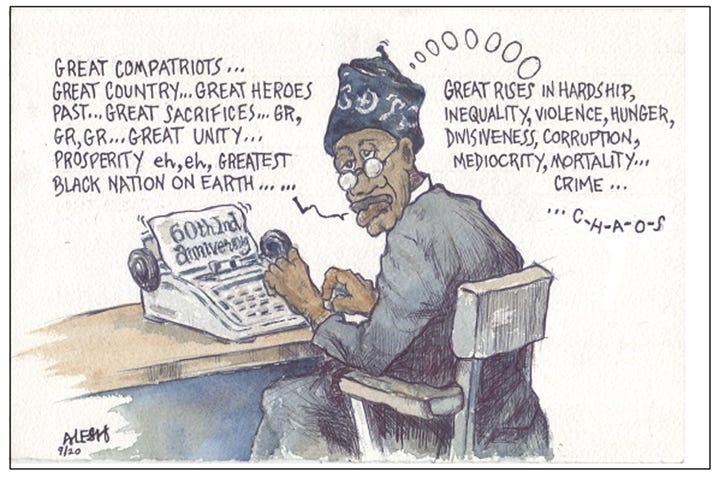 GREAT COMPATRIOTS...
GREAT COUNTRY... GREAT HEROES
PAST... GREAT SACRIFICES... GR,
GR, GR... GREAT UNITY...
PROSPERITY eh, eh, GREATEST
BLACK NATION ON EARTH... ...
GREAT RISES IN HARDSHIP,
INEQUALITY, VIOLENCE, HUNGER,
DIVISIVENESS, CORRUPTION,
MEDIOCRITY, MORTALITY...
CRIME...
... C-H-A-O-S
60th Ind
anniversy
ALESH
9/20